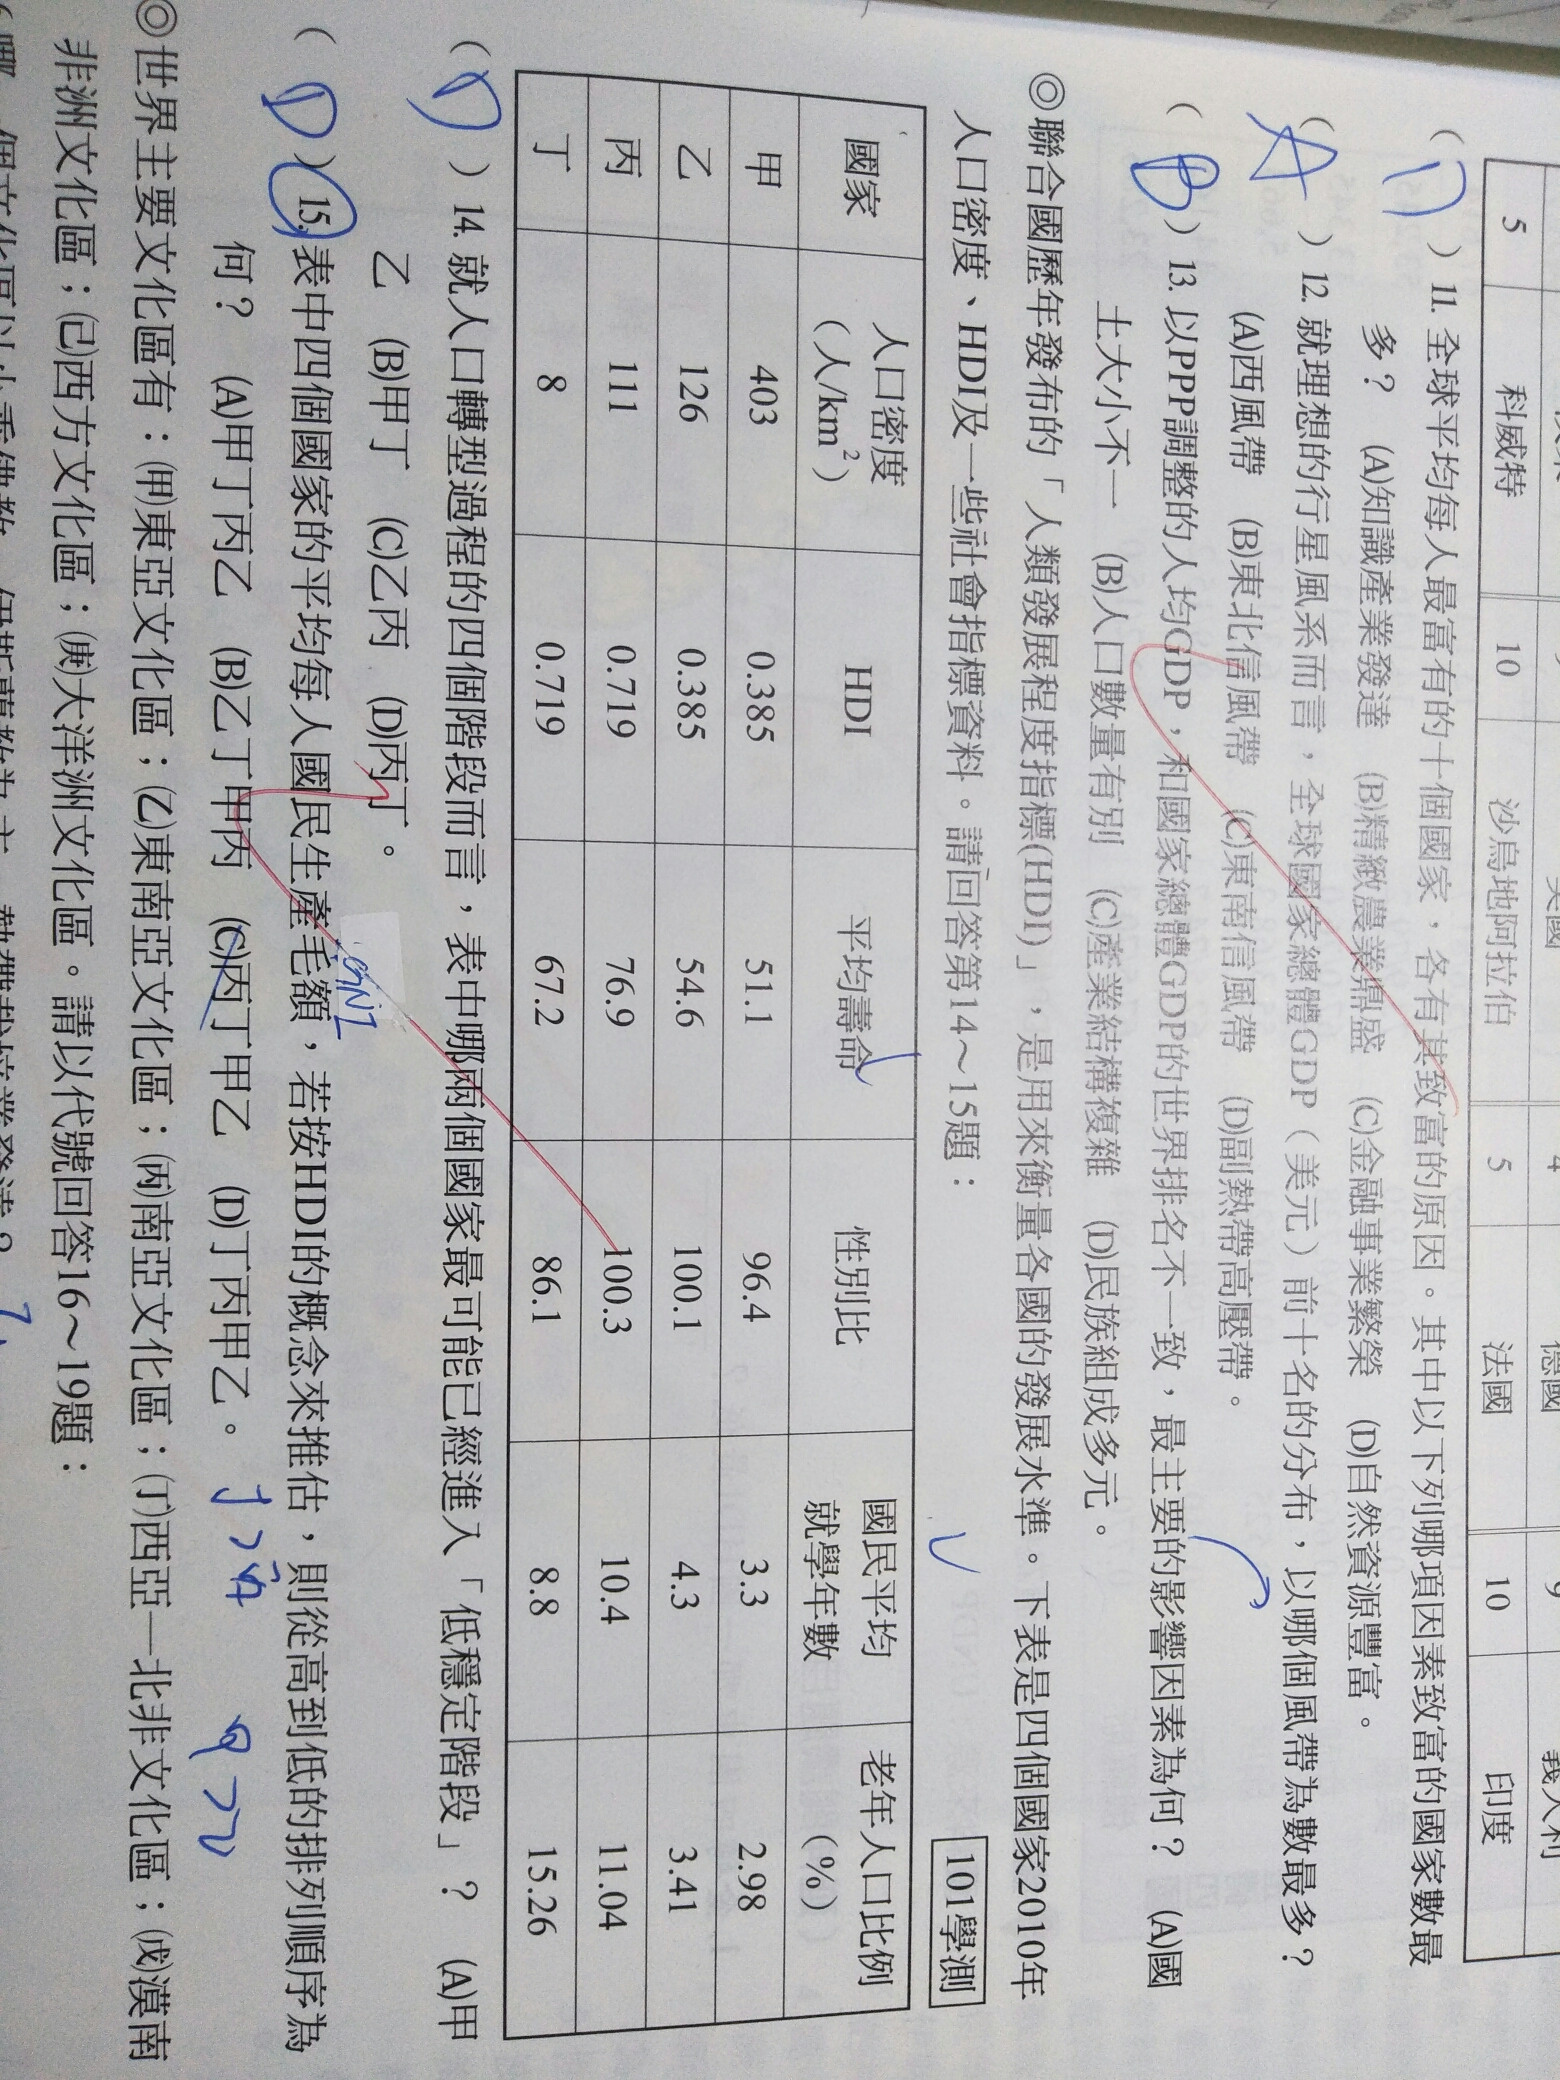 5 科威特 10 沙烏地阿拉伯 5 法國 10 印度
( D ) 11. 全球平均每人最富有的十個國家，各有其致富的原因。其中以下列哪項因素致富的國家數最
多？ (A)知識產業發達 (B)精緻農業鼎盛 (C)金融事業繁榮 (D)自然資源豐富。
( A ) 12. 就理想的行星風系而言，全球國家總體GDP（美元）前十名的分布，以哪個風帶為數最多？
(A)西風帶 (B)東北信風帶 (C)東南信風帶 (D)副熱帶高壓帶。
( B ) 13. 以PPP調整的人均GDP，和國家總體GDP的世界排名不一致，最主要的影響因素為何？ (A)國
土大小不一 (B)人口數量有別 (C)產業結構複雜 (D)民族組成多元。
◎聯合國歷年發布的「人類發展程度指標(HDI)」，是用來衡量各國的發展水準。下表是四個國家2010年
人口密度、HDI及一些社會指標資料。請回答第14～15題： 101學測
國家 人口密度（人/km²） HDI 平均壽命 性別比 國民平均就學年數 老年人口比例（%）
甲 403 0.385 51.1 96.4 3.3 2.98
乙 126 0.385 54.6 100.1 4.3 3.41
丙 111 0.719 76.9 100.3 10.4 11.04
丁 8 0.719 67.2 86.1 8.8 15.26
( D ) 14. 就人口轉型過程的四個階段而言，表中哪兩個國家最可能已經進入「低穩定階段」？ (A)甲
乙 (B)甲丁 (C)乙丙 (D)丙丁。
GNI
( D ) 15. 表中四個國家的平均每人國民生產毛額，若按HDI的概念來推估，則從高到低的排列順序為
何？ (A)甲丁丙乙 (B)乙丁甲丙 (C)丙丁甲乙 (D)丁丙甲乙。
丁>丙 甲>乙
◎世界主要文化區有：(甲)東亞文化區；(乙)東南亞文化區；(丙)南亞文化區；(丁)西亞—北非文化區；(戊)漠南
非洲文化區；(己)西方文化區；(庚)大洋洲文化區。請以代號回答16～19題：